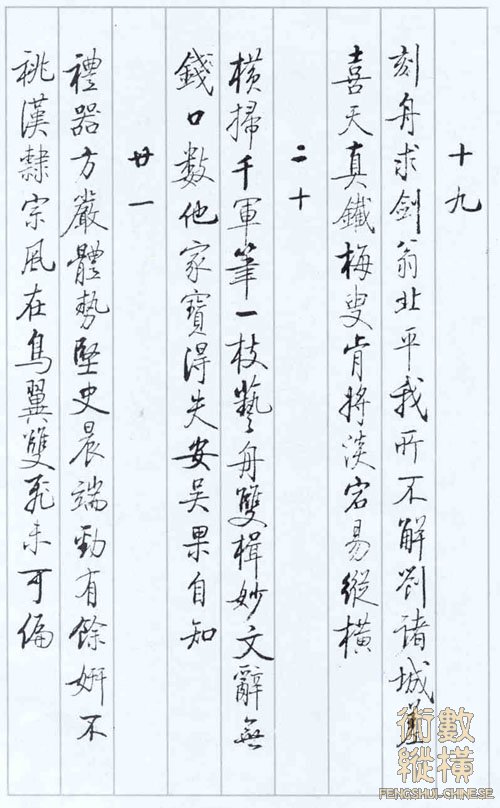 十九
刻舟求劍翁北平我所不解劉諸城差
喜天真鐵梅叟肯將淡宕易縱橫
二十
橫掃千軍筆一枝藝舟雙楫妙文辭無
錢口數他家寶得失安吳果自知
廿一
禮器方嚴體勢堅史晨端勁有餘妍不
祧漢隸宗風在鳥翼雙飛未可偏
術數
縱橫
FENGSHUI-CHINESE